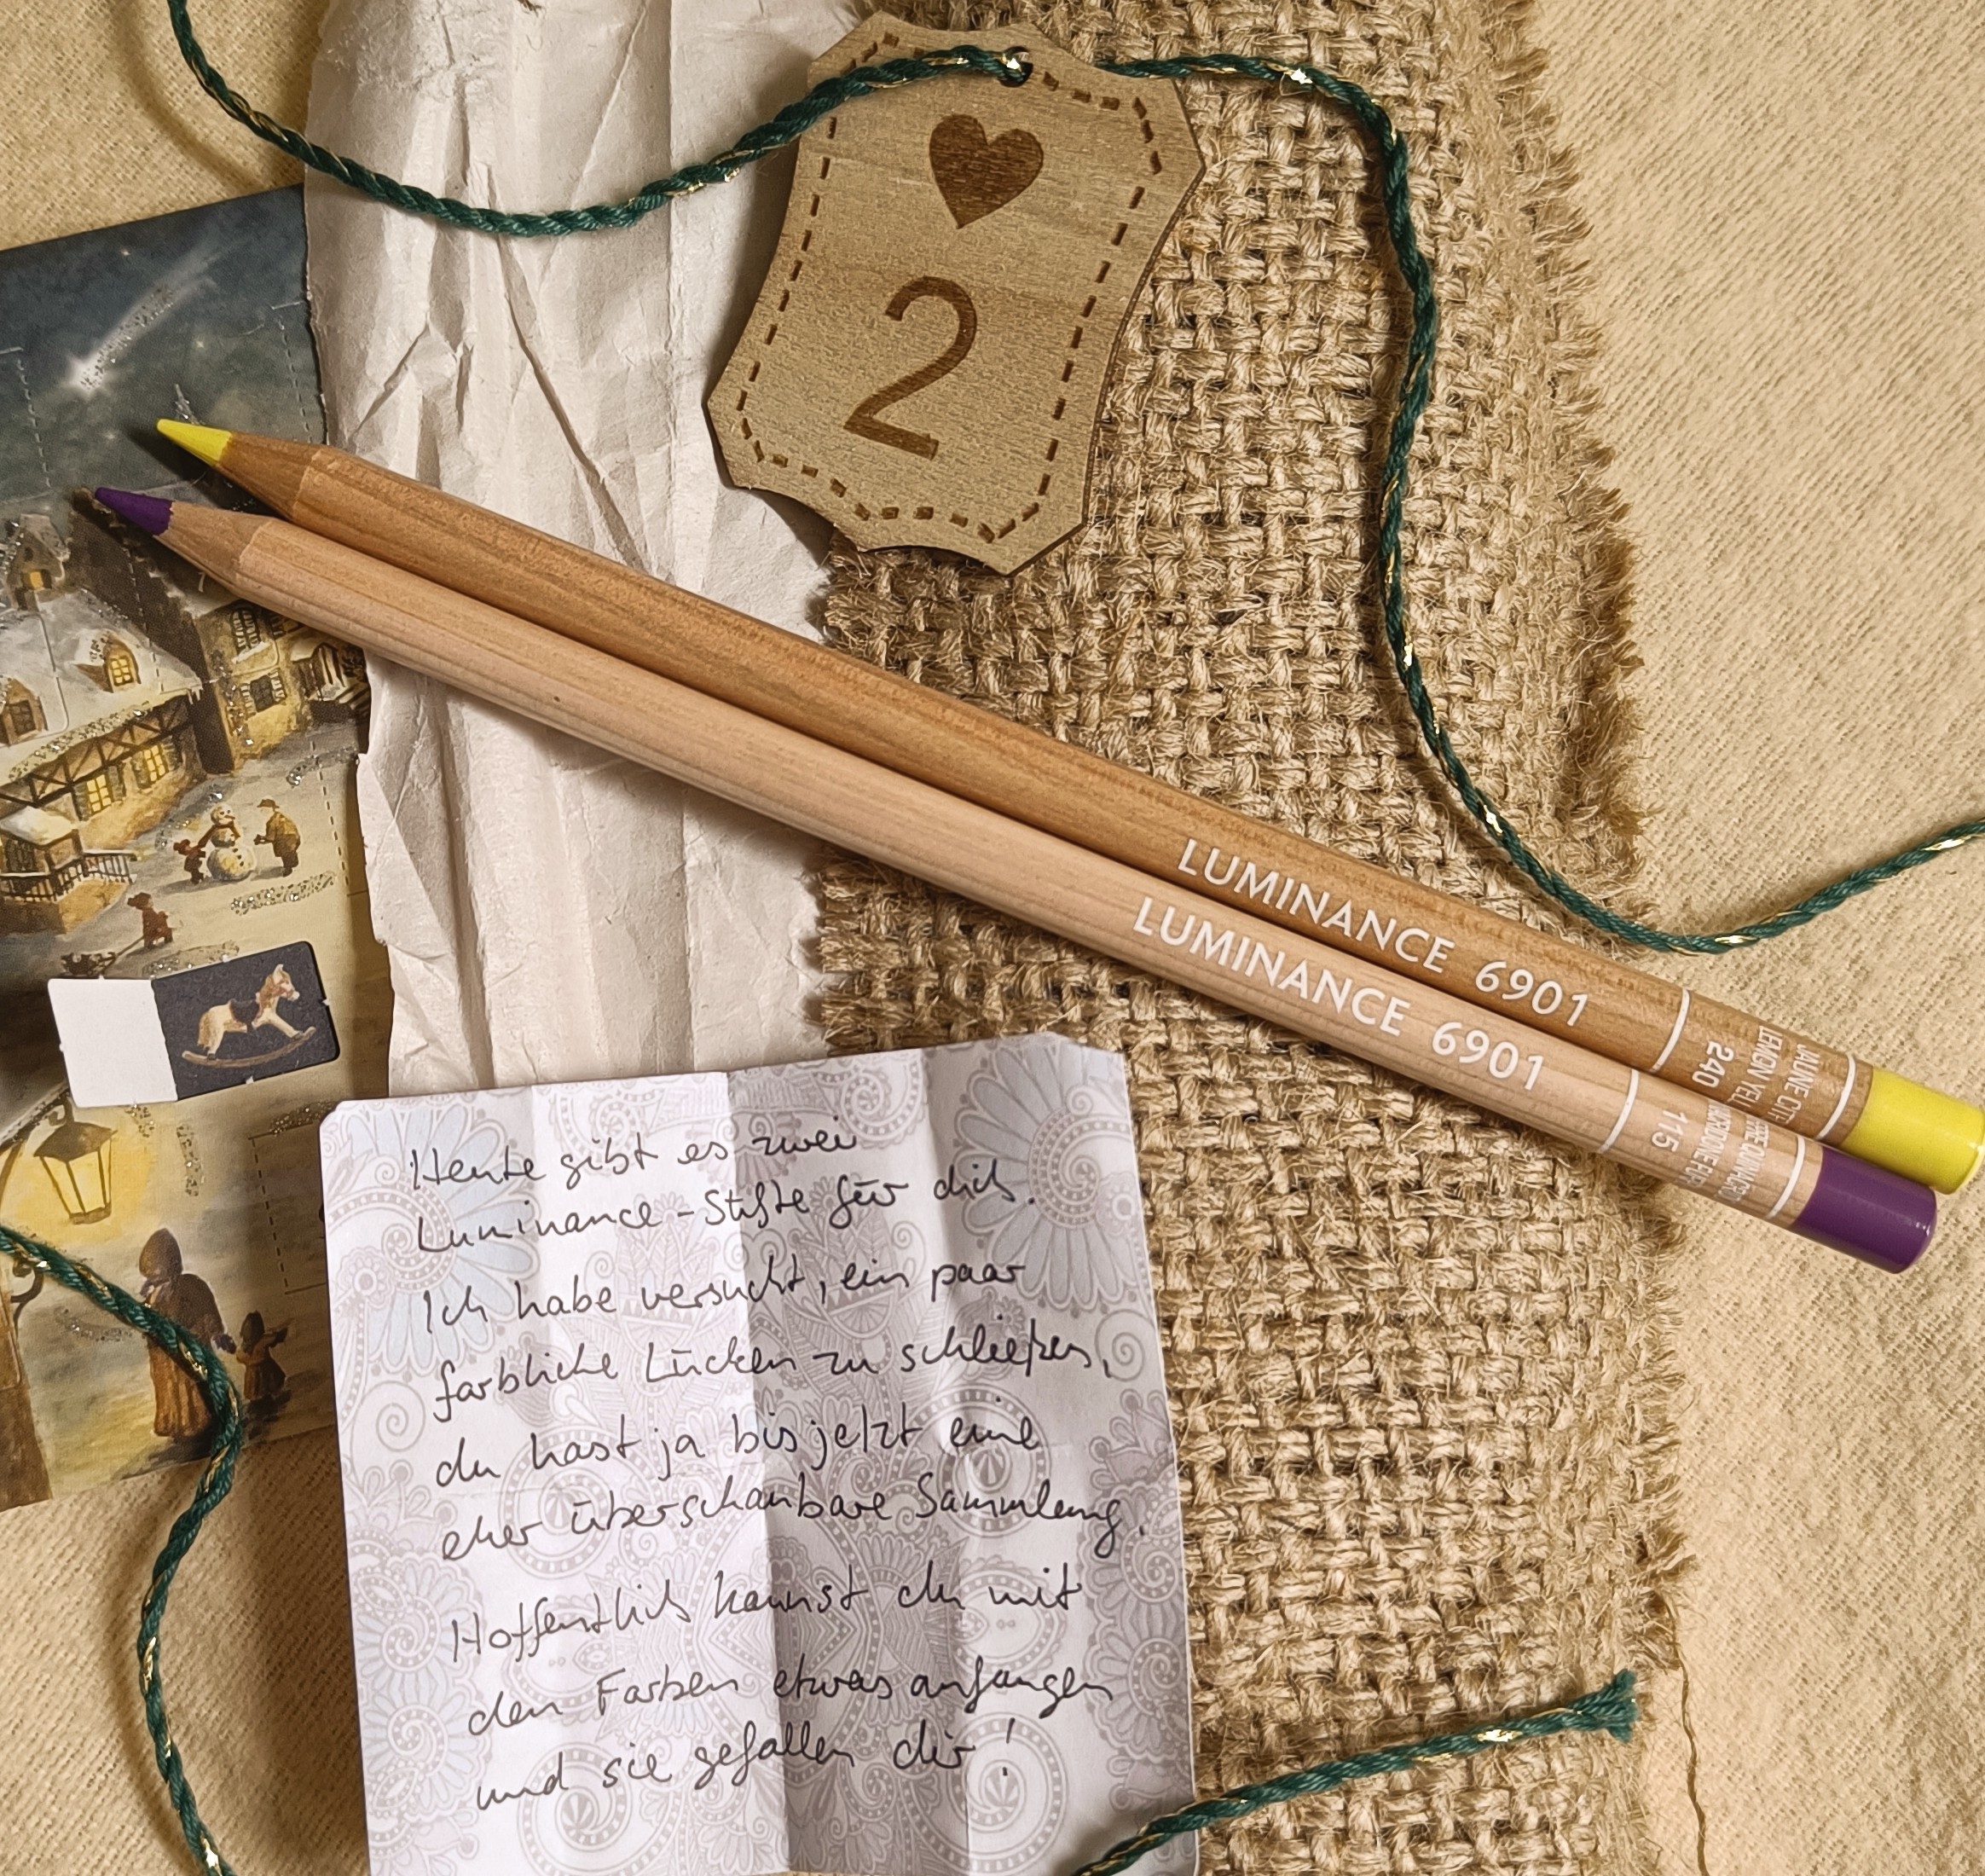 2
LUMINANCE 6901
240
LUMINANCE 6901
115
Heute gibt es zwei
Luminance-Stifte für dich.
Ich habe versucht, ein paar
farbliche Lücken zu schließen,
du hast ja bis jetzt eine
eher überschaubare Sammlung.
Hoffentlich kannst du mit
den Farben etwas anfangen
und sie gefallen dir!